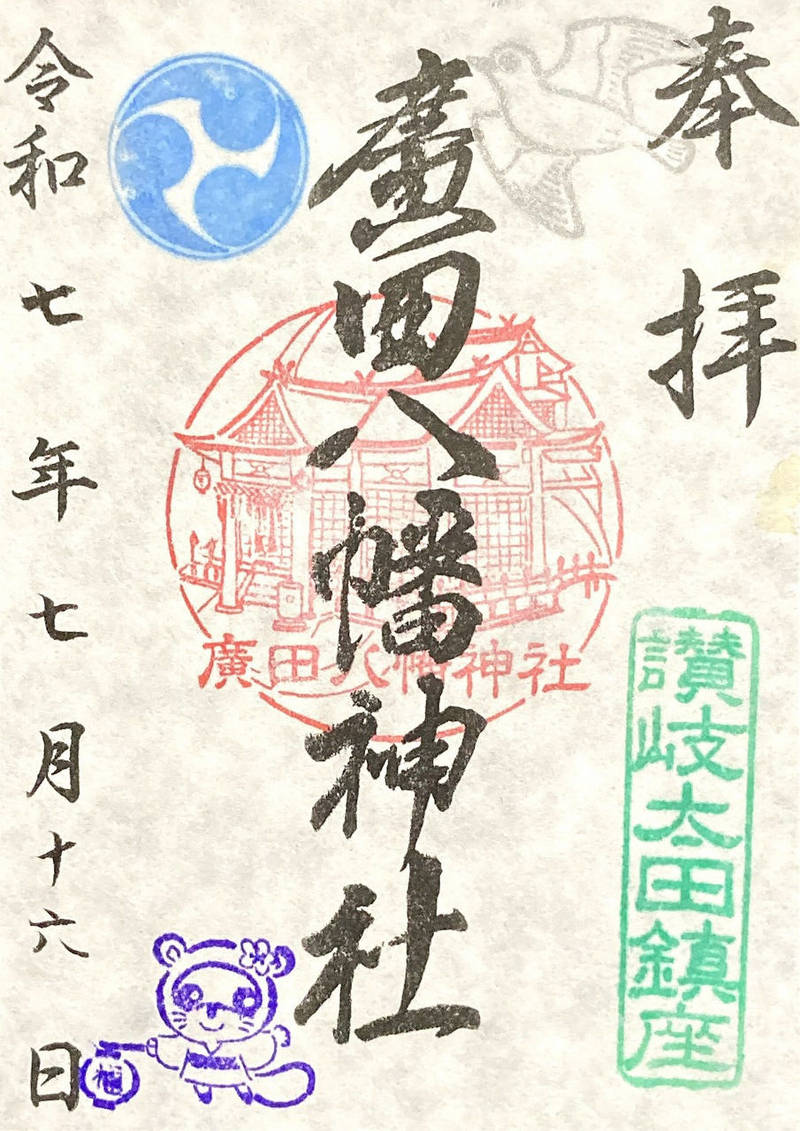 奉拝
讃岐太田鎮座
廣田八幡神社
廣田八幡神社
令和七年七月十六日